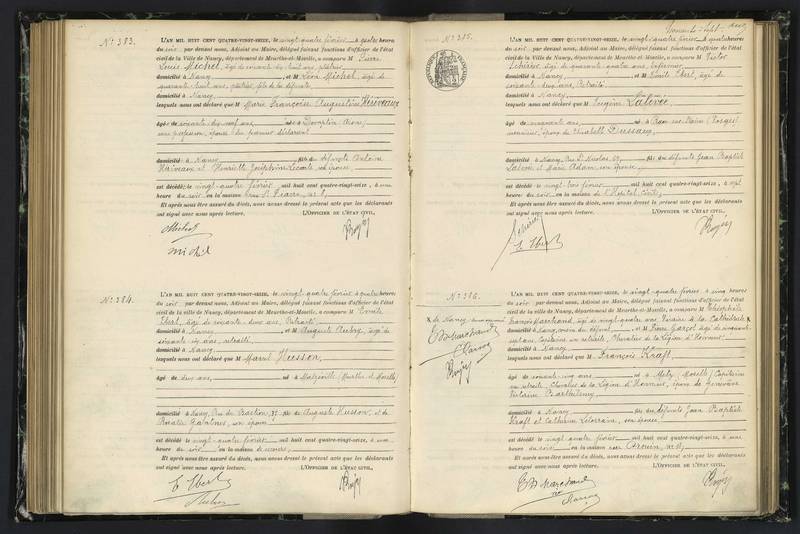 N° 383.
L'AN MIL HUIT CENT QUATRE-VINGT-SEIZE, le vingt-quatre février à quatre heures
du soir par devant nous, Adjoint au Maire, délégué faisant fonctions d'officier de l'état
civil de la Ville de Nancy, département de Meurthe-et-Moselle, a comparu M Pierre
Louis Michel, âgé de soixante dix huit ans, plâtrier
domicilié à Nancy, et M Léon Michel, âgé de
quarante huit ans, plâtrier, fils de la défunte,
domicilié à Nancy,
lesquels nous ont déclaré que M Marie Françoise Augustine Hériveaux
âgé de soixante dix neuf ans, né à
sans profession, épouse du premier déclarant
domicilié à Nancy, fils de défunts Antoine
Hériveaux et Henriette Joséphine Lecomte, son épouse
est décédé le vingt-quatre février, mil huit cent quatre-vingt-seize, à une
heure du soir en la maison rue St Fiacre, n° 8,
Et après nous être assuré du décès, nous avons dressé le présent acte que les déclarants
ont signé avec nous après lecture. L'OFFICIER DE L'ÉTAT CIVIL,
Michel
N° 384.
L'AN MIL HUIT CENT QUATRE-VINGT-SEIZE, le vingt-quatre février à quatre heures
du soir par devant nous, Adjoint au Maire, délégué faisant fonctions d'officier de l'état
civil de la ville de Nancy, département de Meurthe-et-Moselle, a comparu M Emile
Ebert, âgé de soixante-deux ans, Retraité
domicilié à Nancy, et M Auguste Aubry, âgé de
soixante six ans, retraité
domicilié à Nancy,
lesquels nous ont déclaré que M Marcel Husson
âgé de deux ans, né à Malzéville (Meurthe et Moselle)
domicilié à Nancy, Rue du Bastion, 31 fils de Auguste Husson, et de
Rosalie, son épouse
est décédé le vingt-quatre février mil huit cent quatre-vingt-seize, à une
heure du soir en la maison de secours,
Et après nous être assuré du décès, nous avons dressé le présent acte que les déclarants
ont signé avec nous après lecture. L'OFFICIER DE L'ÉTAT CIVIL,
E Ebert
N° 385.
L'AN MIL HUIT CENT QUATRE-VINGT-SEIZE, le vingt-quatre février à quatre heures
du soir par devant nous, Adjoint au Maire, délégué faisant fonctions d'officier de l'état
civil de la Ville de Nancy, département de Meurthe-et-Moselle, a comparu M Victor
âgé de quarante quatre ans, infirmier,
domicilié à Nancy, et M Emile Ebert, âgé de
soixante-deux ans, Retraité
domicilié à Nancy,
lesquels nous ont déclaré que M Eugène Lalevée
âgé de cinquante ans, né à Raon (Vosges)
époux de Elisabeth
domicilié à Nancy, Rue St Nicolas, fils de défunts Jean Baptiste
Lalevée et Marie Adam, son épouse,
est décédé le vingt-trois février, mil huit cent quatre-vingt-seize, à sept
heures du soir en la maison de l'Hôpital Civil,
Et après nous être assuré du décès, nous avons dressé le présent acte que les déclarants
ont signé avec nous après lecture. L'OFFICIER DE L'ÉTAT CIVIL,
E Ebert
N° 386.
L'AN MIL HUIT CENT QUATRE-VINGT-SEIZE, le vingt-quatre février à cinq heures
du soir par devant nous, Adjoint au Maire, délégué faisant fonctions d'officier de l'état
civil de la ville de Nancy, département de Meurthe-et-Moselle, a comparu M Théophile
François Marchand, âgé de vingt-quatre ans, Vicaire à la Cathédrale
domicilié à Nancy, et M Pierre âgé de cinquante
sept ans, Capitaine en retraite, Chevalier de la Légion d'Honneur
domicilié à Nancy,
lesquels nous ont déclaré que M François Kraft
âgé de soixante-cinq ans, né à Metz, (Moselle) Capitaine
en retraite, Chevalier de la Légion d'Honneur, époux de Geneviève
Victorine Barthélemy
domicilié à Nancy fils de défunts Jean Baptiste
Kraft et Catherine Lelorrain, son épouse
est décédé le vingt-quatre février mil huit cent quatre-vingt-seize, à une
heure du soir en la maison rue
Et après nous être assuré du décès, nous avons dressé le présent acte que les déclarants
ont signé avec nous après lecture. L'OFFICIER DE L'ÉTAT CIVIL,
Th Marchand